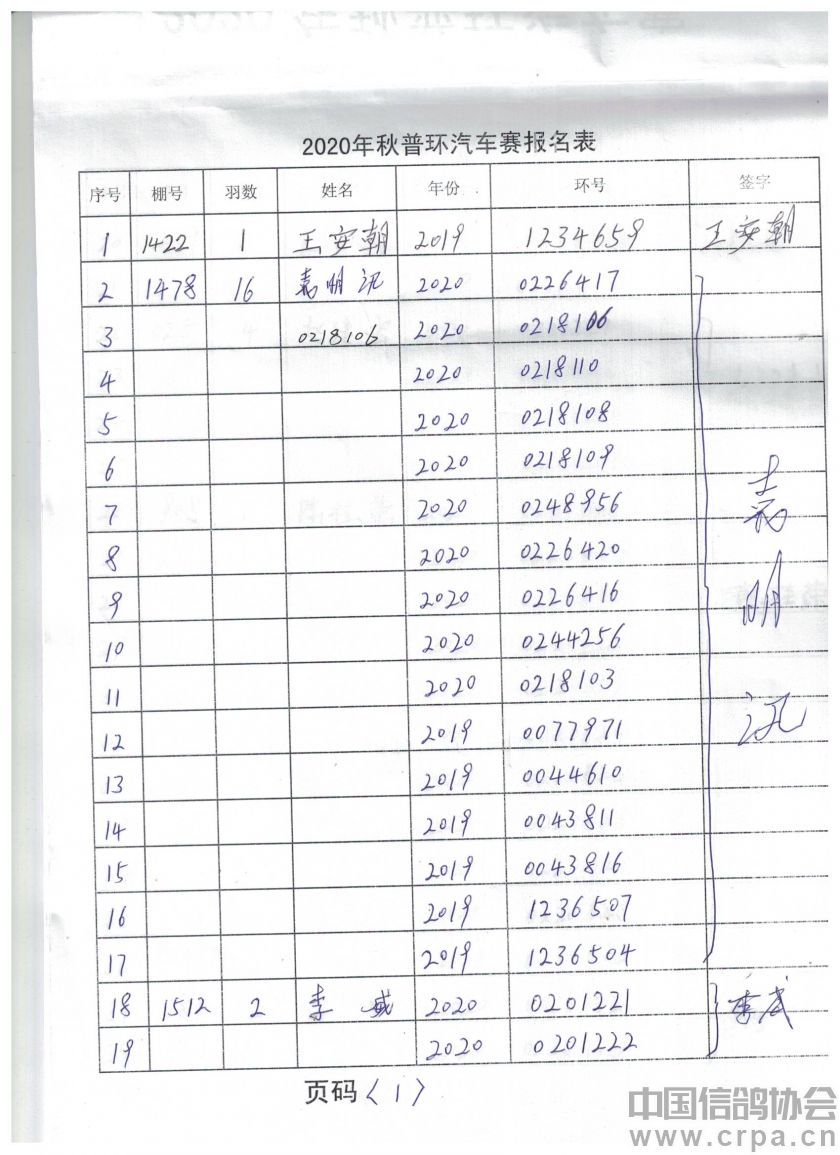 2020年秋普环汽车赛报名表
序号 棚号 羽数 姓名 年份 环号 签字
1 1422 1 王安朝 2019 1234659 王安朝
2 1478 16 袁明汛 2020 0226417
3 0218106 2020 0218106
4 2020 0218110
5 2020 0218108
6 2020 0218109
7 2020 0248956
8 2020 0226420
9 2020 0226416
10 2020 0244256
11 2020 0218103
12 2019 0077971
13 2019 0044610
14 2019 0043811
15 2019 0043816
16 2019 1236507
17 2019 1236504
袁明汛
18 1512 2 李威 2020 0201221 李威
19 2020 0201222
页码〈1〉
中国信鸽协会
www.crpa.cn